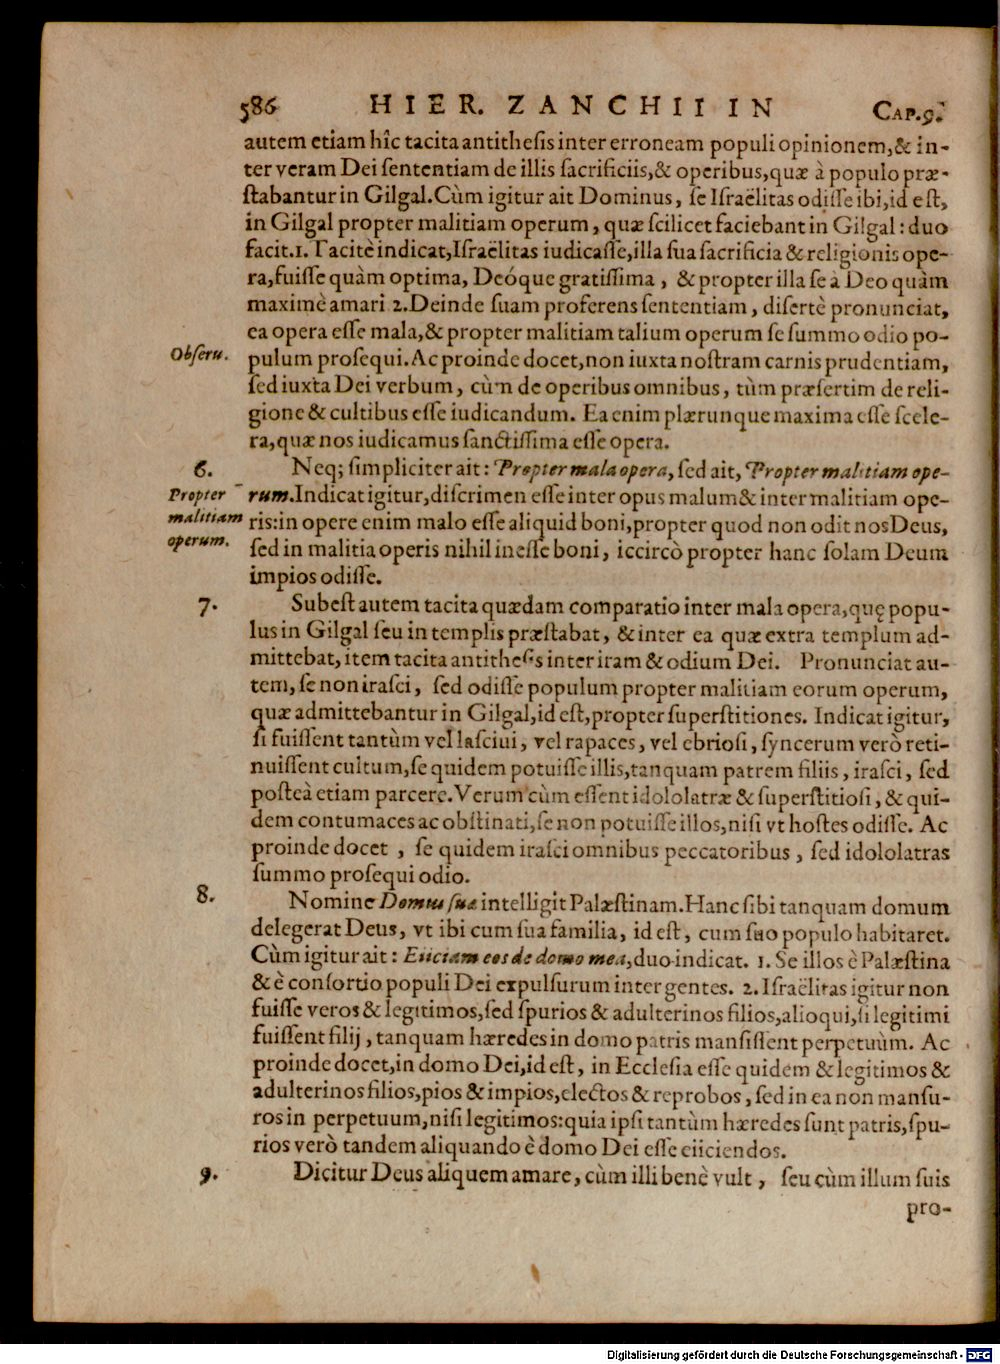 586 HIER. ZANCHII IN CAP.9.
autem etiam hîc tacita antithesis inter erroneam populi opinionem,& in-
ter veram Dei sententiam de illis sacrificiis,& operibus,quæ à populo præ-
stabantur in Gilgal.Cùm igitur ait Dominus, se Israëlitas odisse ibi,id est,
in Gilgal propter malitiam operum, quæ scilicet faciebant in Gilgal: duo
facit.1. Tacitè indicat,Israëlitas iudicasse,illa sua sacrificia & religionis ope-
ra,fuisse quàm optima, Deóque gratissima, & propter illa se à Deo quàm
maximè amari 2.Deinde suam proferens sententiam, disertè pronunciat,
ea opera esse mala,& propter malitiam talium operum se summo odio po-
Obseru. pulum prosequi.Ac proinde docet,non iuxta nostram carnis prudentiam,
sed iuxta Dei verbum, cùm de operibus omnibus, tùm præsertim de reli-
gione & cultibus esse iudicandum. Ea enim plærunque maxima esse scele-
ra,quæ nos iudicamus sanctissima esse opera.
6. Neq; simpliciter ait: Propter mala opera, sed ait, Propter malitiam ope-
Propter rum.Indicat igitur,discrimen esse inter opus malum & inter malitiam ope-
malitiam ris:in opere enim malo esse aliquid boni,propter quod non odit nos Deus,
operum. sed in malitia operis nihil inesse boni, iccircò propter hanc solam Deum
impios odisse.
7. Subest autem tacita quædam comparatio inter mala opera,quę popu-
lus in Gilgal seu in templis præstabat, & inter ea quæ extra templum ad-
mittebat, item tacita antithesis inter iram & odium Dei. Pronunciat au-
tem, se non irasci, sed odisse populum propter malitiam eorum operum,
quæ admittebantur in Gilgal,id est,propter superstitiones. Indicat igitur,
si fuissent tantùm vel lasciui, vel rapaces, vel ebriosi, syncerum verò reti-
nuissent cultum,se quidem potuisse illis,tanquam patrem filiis, irasci, sed
posteà etiam parcere.Verum cùm essent idololatræ & superstitiosi, & qui-
dem contumaces ac obstinati,se non potuisse illos,nisi vt hostes odisse. Ac
proinde docet, se quidem irasci omnibus peccatoribus, sed idololatras
summo prosequi odio.
8. Nomine Domus suæ intelligit Palæstinam.Hanc sibi tanquam domum
delegerat Deus, vt ibi cum sua familia, id est, cum suo populo habitaret.
Cùm igitur ait: Eiiciam eos de domo mea,duo indicat. 1. Se illos è Palæstina
& è consortio populi Dei expulsurum inter gentes. 2. Israëlitas igitur non
fuisse veros & legitimos,sed spurios & adulterinos filios,alioqui,si legitimi
fuissent filij, tanquam hæredes in domo patris mansissent perpetuùm. Ac
proinde docet,in domo Dei,id est, in Ecclesia esse quidem & legitimos &
adulterinos filios,pios & impios,electos & reprobos, sed in ea non mansu-
ros in perpetuum,nisi legitimos:quia ipsi tantùm hæredes sunt patris,spu-
rios verò tandem aliquando è domo Dei esse eiiciendos.
9. Dicitur Deus aliquem amare, cùm illi benè vult, seu cùm illum suis
pro-
Digitalisierung gefördert durch die Deutsche Forschungsgemeinschaft - DFG